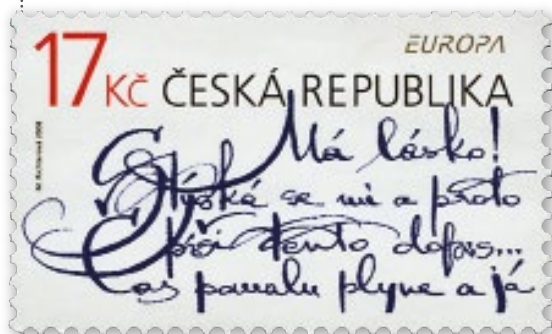 EUROPA
17 Kč ČESKÁ REPUBLIKA
Má lásko!
Stýská se mi a proto
píši tento dopis...
Čas pomalu plyne a já